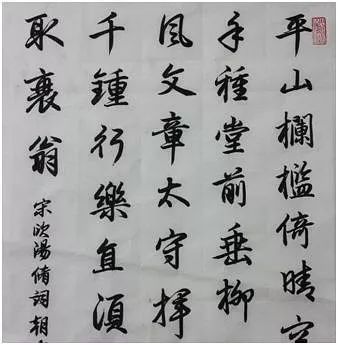 平山欄檻倚晴空
手種堂前垂柳
風文章太守揮
千鍾行樂直須
取衰翁
宋欧陽脩詞朝